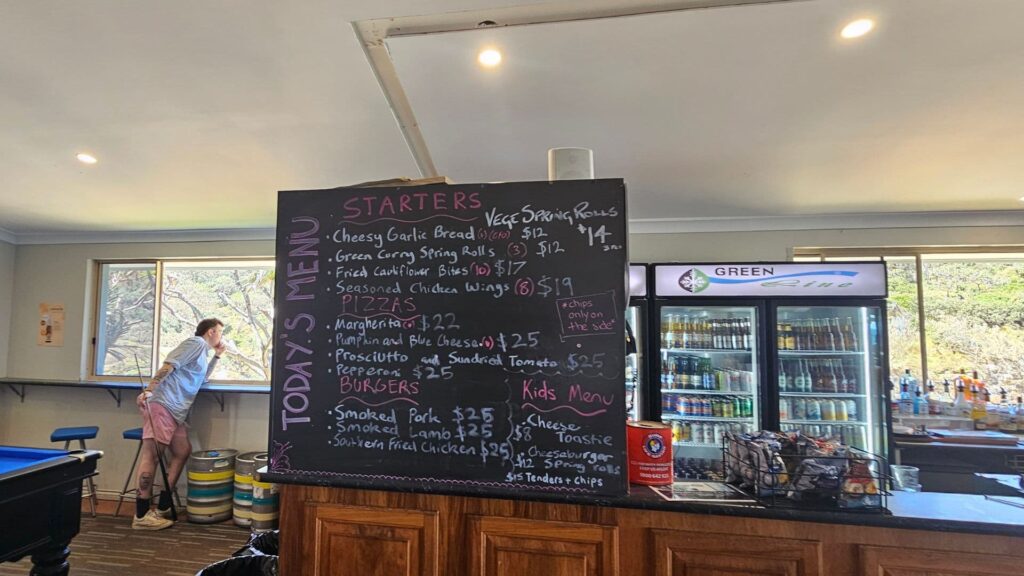 TODAY'S MENU
STARTERS
VEGE SPRING ROLLS
$14
• Cheesy Garlic Bread $12
• Green Curry Spring Rolls (3) $12
• Fried Cauliflower Bites (10) $17
• Seasoned Chicken Wings (8) $19
"chips only on the side"
PIZZAS
Margherita (v) $22
Pumpkin and Blue Cheese $25
Prosciutto and Sundried Tomato $25
• Pepperoni $25
BURGERS
• Smoked Pork $25
• Smoked Lamb $25
• Southern Fried Chicken $25
Kids Menu
• Cheese
$8 Toastie
• Cheeseburger
$12 Spring rolls
$15 Tenders + Chips
GREEN
Line